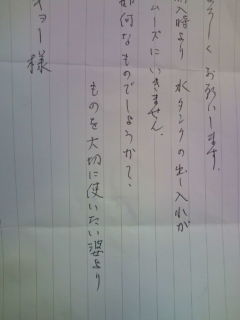 ろしくお願いします。
入時より水タンクの出し入れが
ムーズにいきません。
如何なものでしょうか?、
ものを大切に使いたい婆より
ョー様